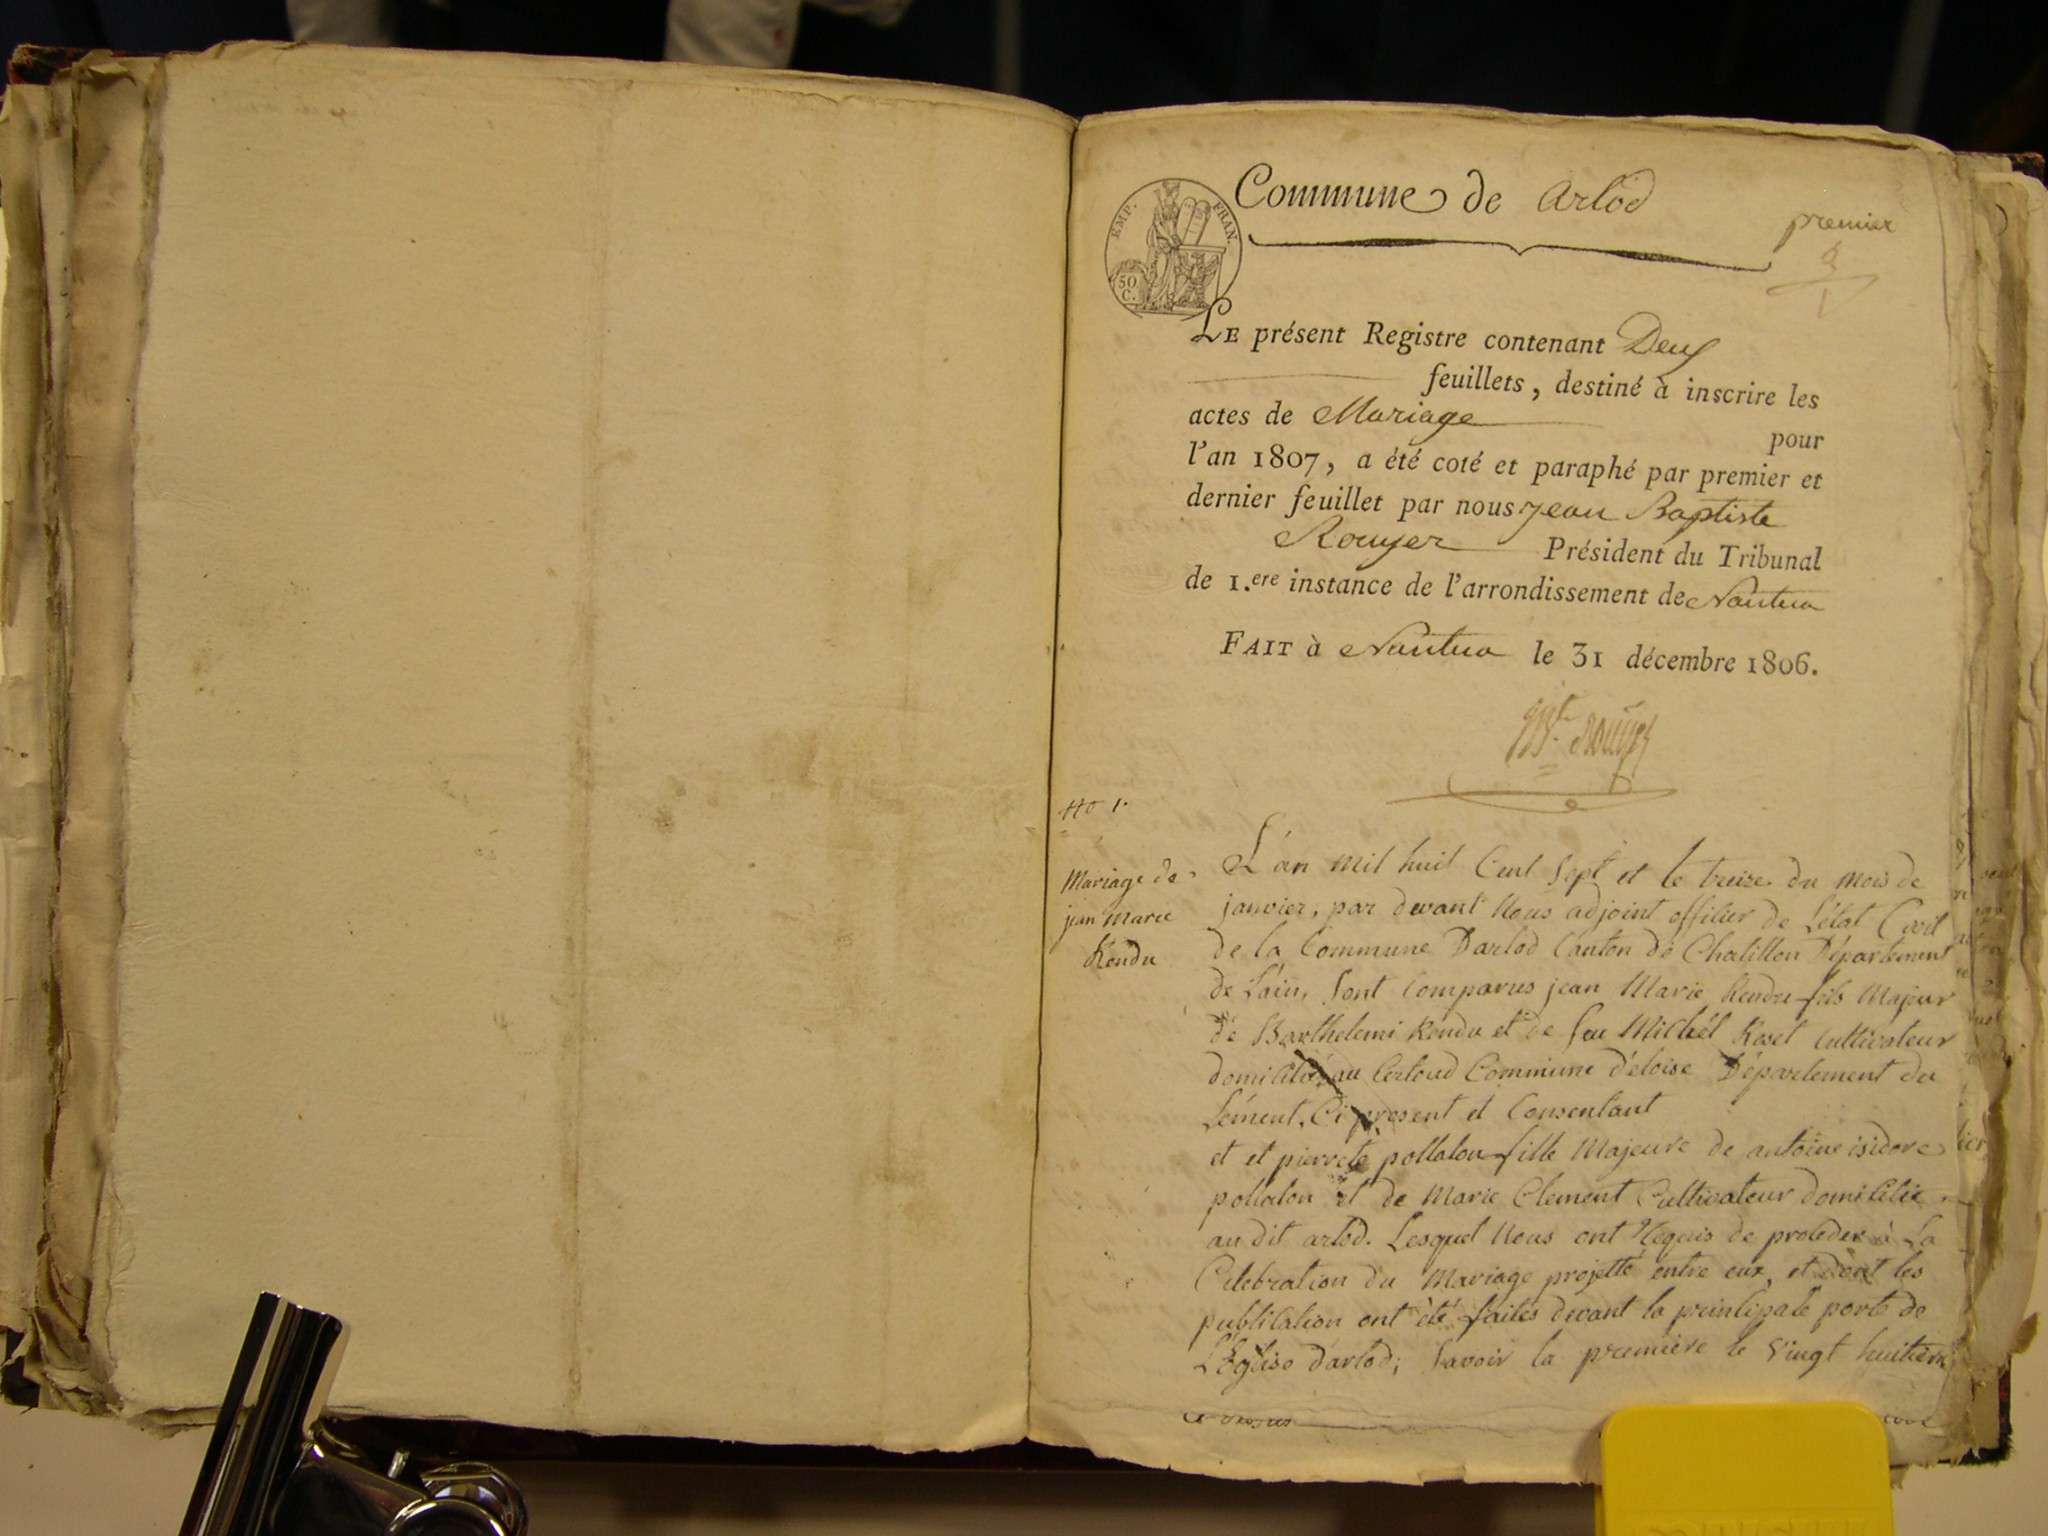 Commune de arlod
premier
EMP. FRAN.
50 C.
LE présent Registre contenant Deux
feuillets, destiné à inscrire les
actes de Mariage pour
l'an 1807, a été coté et paraphé par premier et
dernier feuillet par nous jean Baptiste
Rouyer Président du Tribunal
de 1.ere instance de l'arrondissement de Nantua
FAIT à Nantua le 31 décembre 1806.
JBte Rouyer
No 1.
Mariage de
jean Marie
Rendu
L'an mil huit Cent Sept et le treize du mois de
janvier, par devant Nous adjoint officier de L'état Civil
de la Commune Darlod Canton de Chatillon Département
de L'ain, Sont Comparus jean Marie Rendu fils Majeur
de Barthelemi Rendu et de feu Michél Rosel Cultivateur
domicilié au Commune d'éloise Département du
Lément, Ci present et Consentant
et et pierrete pollalon fille Majeure de antoine isidore
pollalon et de Marie Clement Cultivateur domicilié
au dit arlod. Lesquel Nous ont Requis de proceder à La
Celebration du Mariage projetté entre eux, et dont les
publication ont été faites devant la principale porte de
L'Eglise d'arlod; Savoir la premiére le vingt huitiém